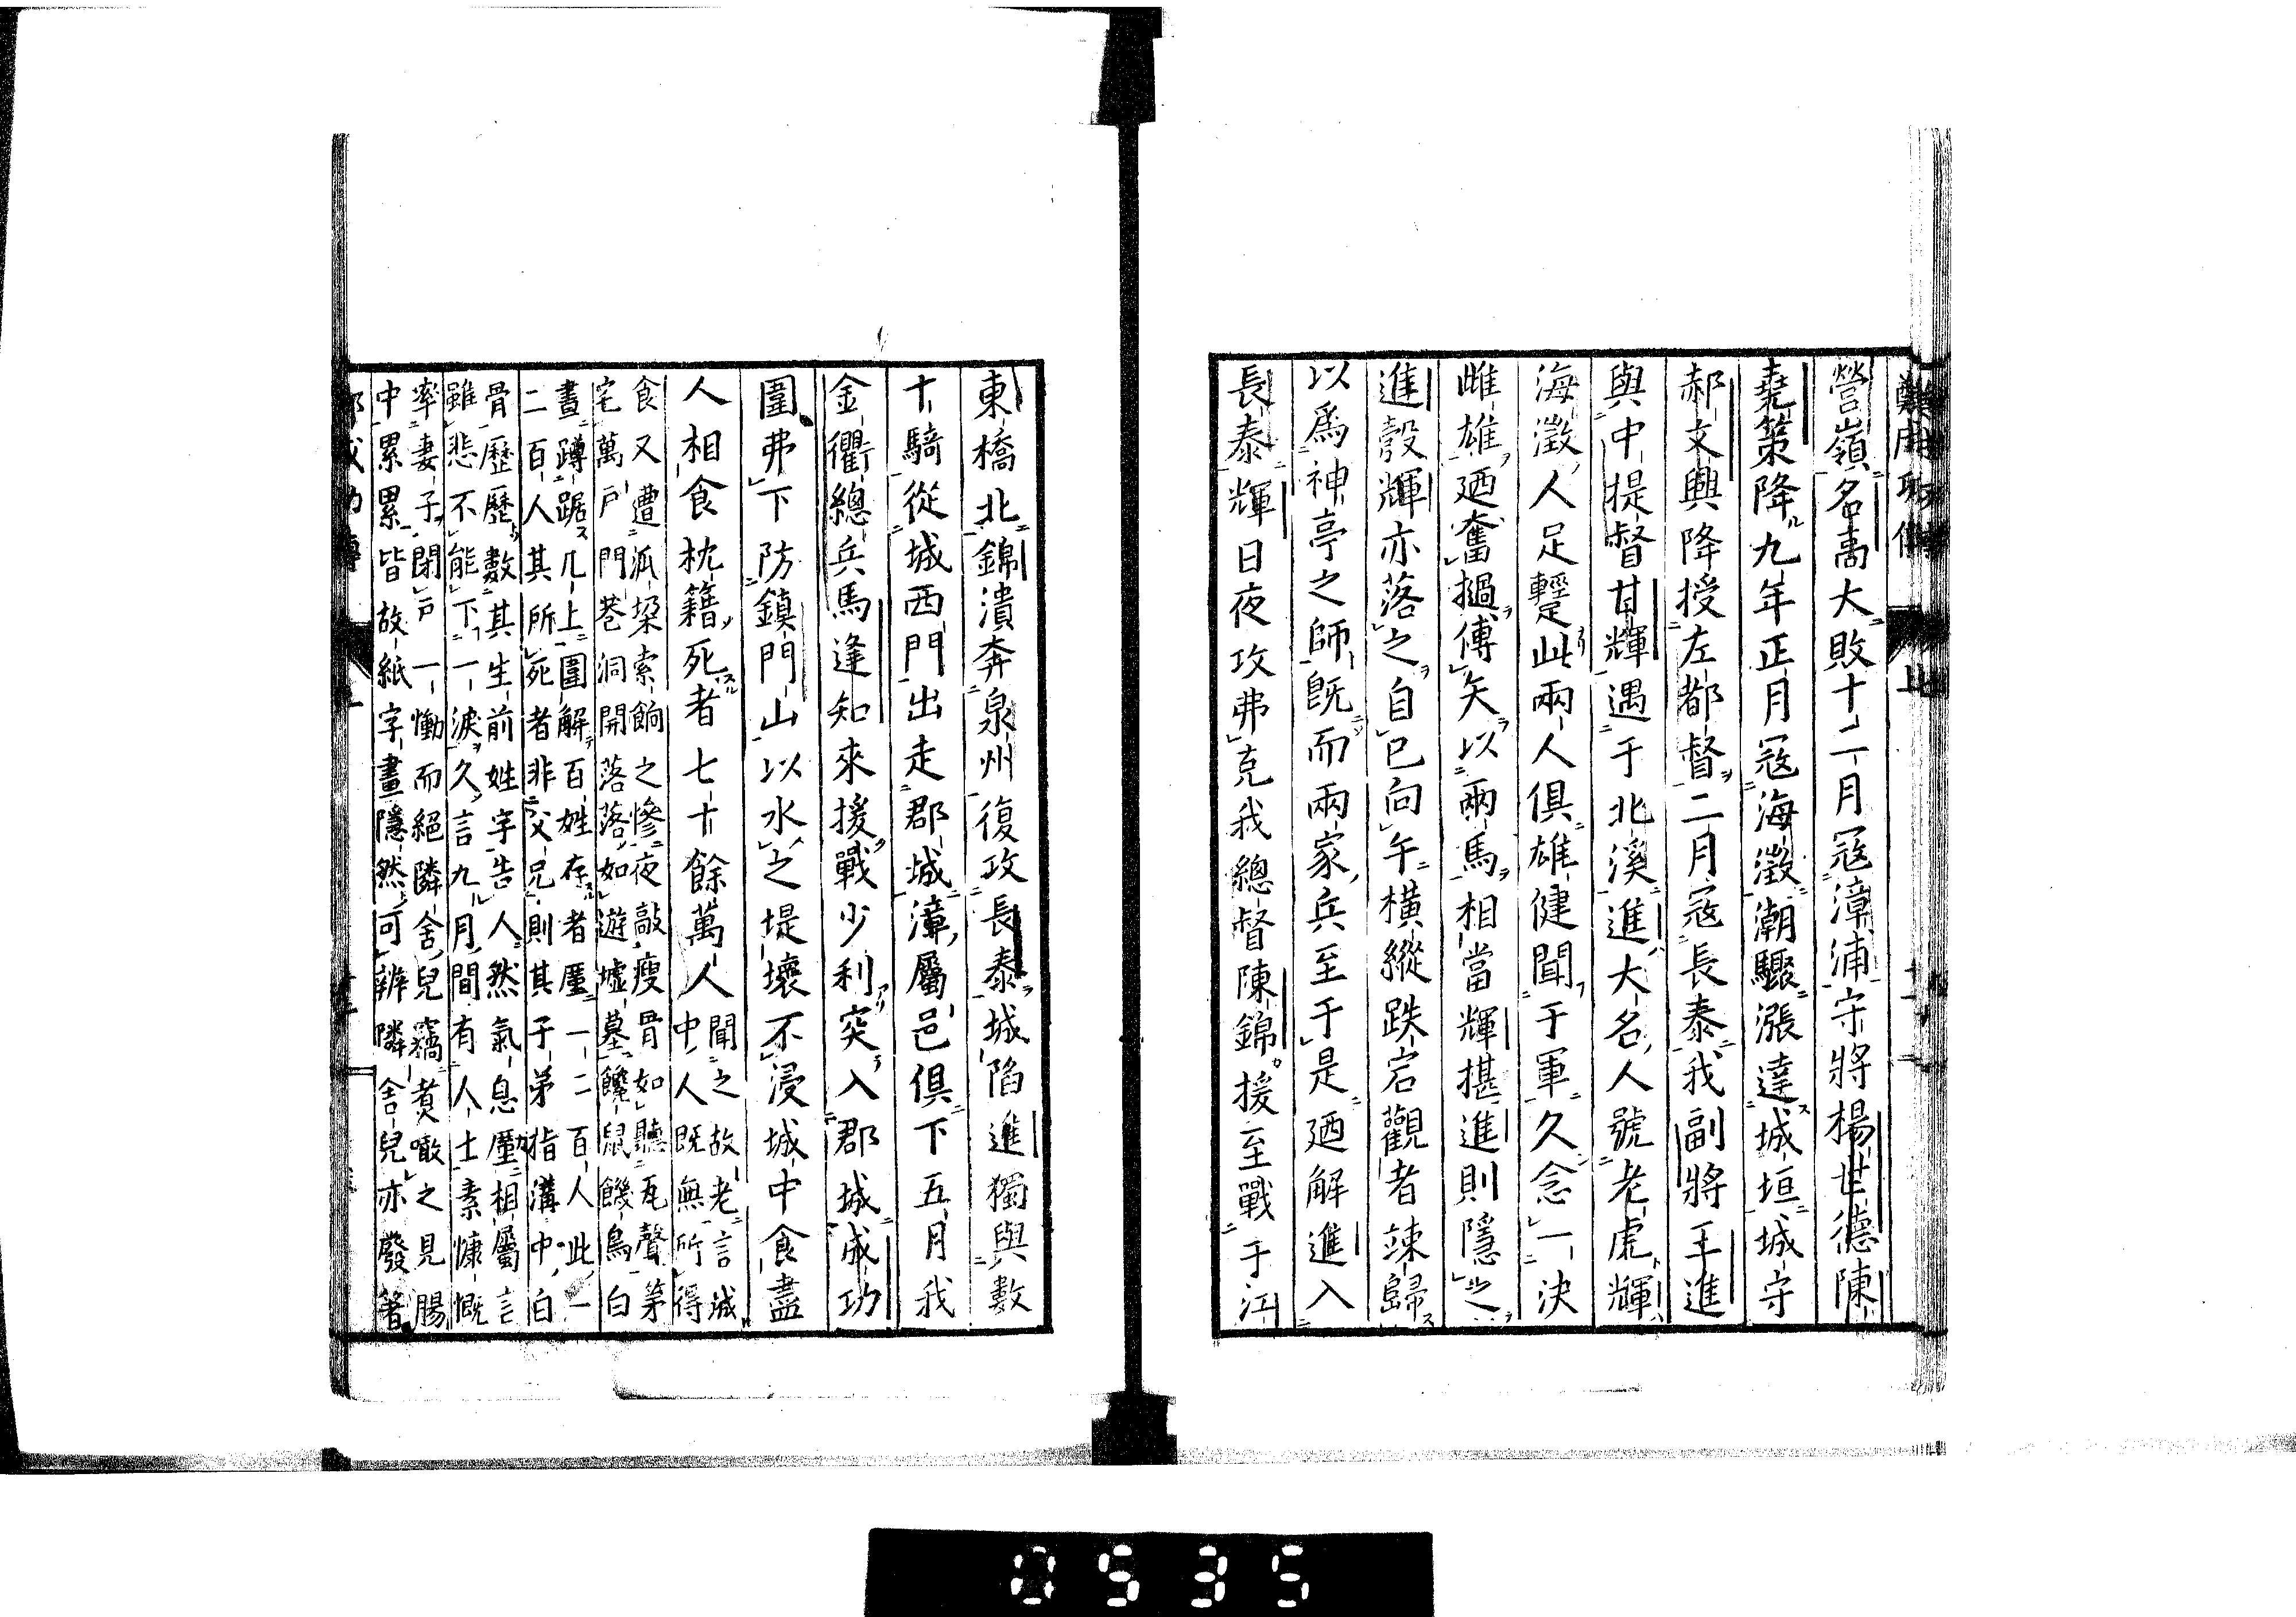 營嶺名高大敗十二月寇漳浦守將楊世德陳
堯策降九年正月寇海澄潮驟漲達城垣城守
郝文興降授左都督二月寇長泰我副將王進
與中提督甘輝遇于北溪進大名人號老虎輝
海澄人足躄此兩人俱雄健聞于軍久念一決
雌雄廼奮撾傳矢以兩馬相當輝揕進則隱之
進彀輝亦落之自巳向午橫縱跌宕觀者竦歸
以爲神亭之師既而兩家兵至于是廼解進入
長泰輝日夜攻弗克我總督陳錦援至戰于江
東橋北錦潰奔泉州復攻長泰城陷進獨與數
十騎從城西門出走郡城漳屬邑俱下五月我
金衢總兵馬逢知來援戰少利突入郡城成功
圍弗下防鎮門山以水之堤壞不浸城中食盡
人相食枕籍死者七十餘萬人聞之故老言城
中人既無所得
食又遭派垜索餉之慘夜敲瘦骨如聽瓦聲第
宅萬戸門巷洞開落落如遊墟墓饞鼠饑烏白
晝蹲踞几上圍解百姓存者厪一二百人此一
二百人其所死者非父兄則其子弟指溝中白
骨歷歷數其生前姓字告人然氣息厪相屬言
雖悲不能下一淚久言九月間有人士素慷慨
率妻子閉戸一慟而絕隣舍兒竊煑噉之見腸
中累累皆故紙字畫隱然可辨隣舍兒亦廢箸
鄭成功傳
0535